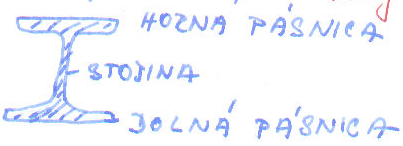 HORNÁ PÁSNICA
STOJINA
DOLNÁ PÁSNICA